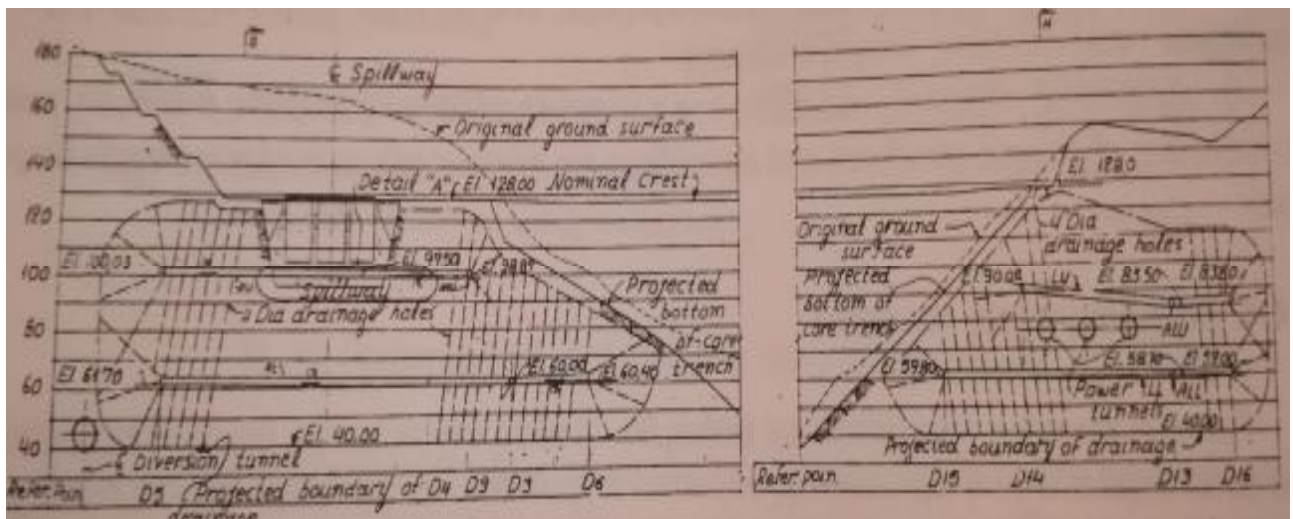 180
160
140
120
100
80
60
40
₵ Spillway
Original ground surface
Detail "A" El. 128.00 Nominal Crest
El. 100.03
El. 97.50
Spillway
Dia drainage holes
Projected
bottom
of core
trench
El. 61.70
El. 60.00
El. 60.40
El. 40.00
₵ Diversion tunnel
D5 (Projected boundary of D4 D9 D3 D6
drainage
Original ground
surface
Projected
bottom of
core trench
4 Dia
drainage holes
El. 90.00
LU
El. 85.50
El. 83.80
AIU
El. 59.80
El. 58.10
El. 59.00
Power
tunnels
LL
ALL
El. 40.00
Projected boundary of drainage
Refer. poin
D15 D14 D13 D16